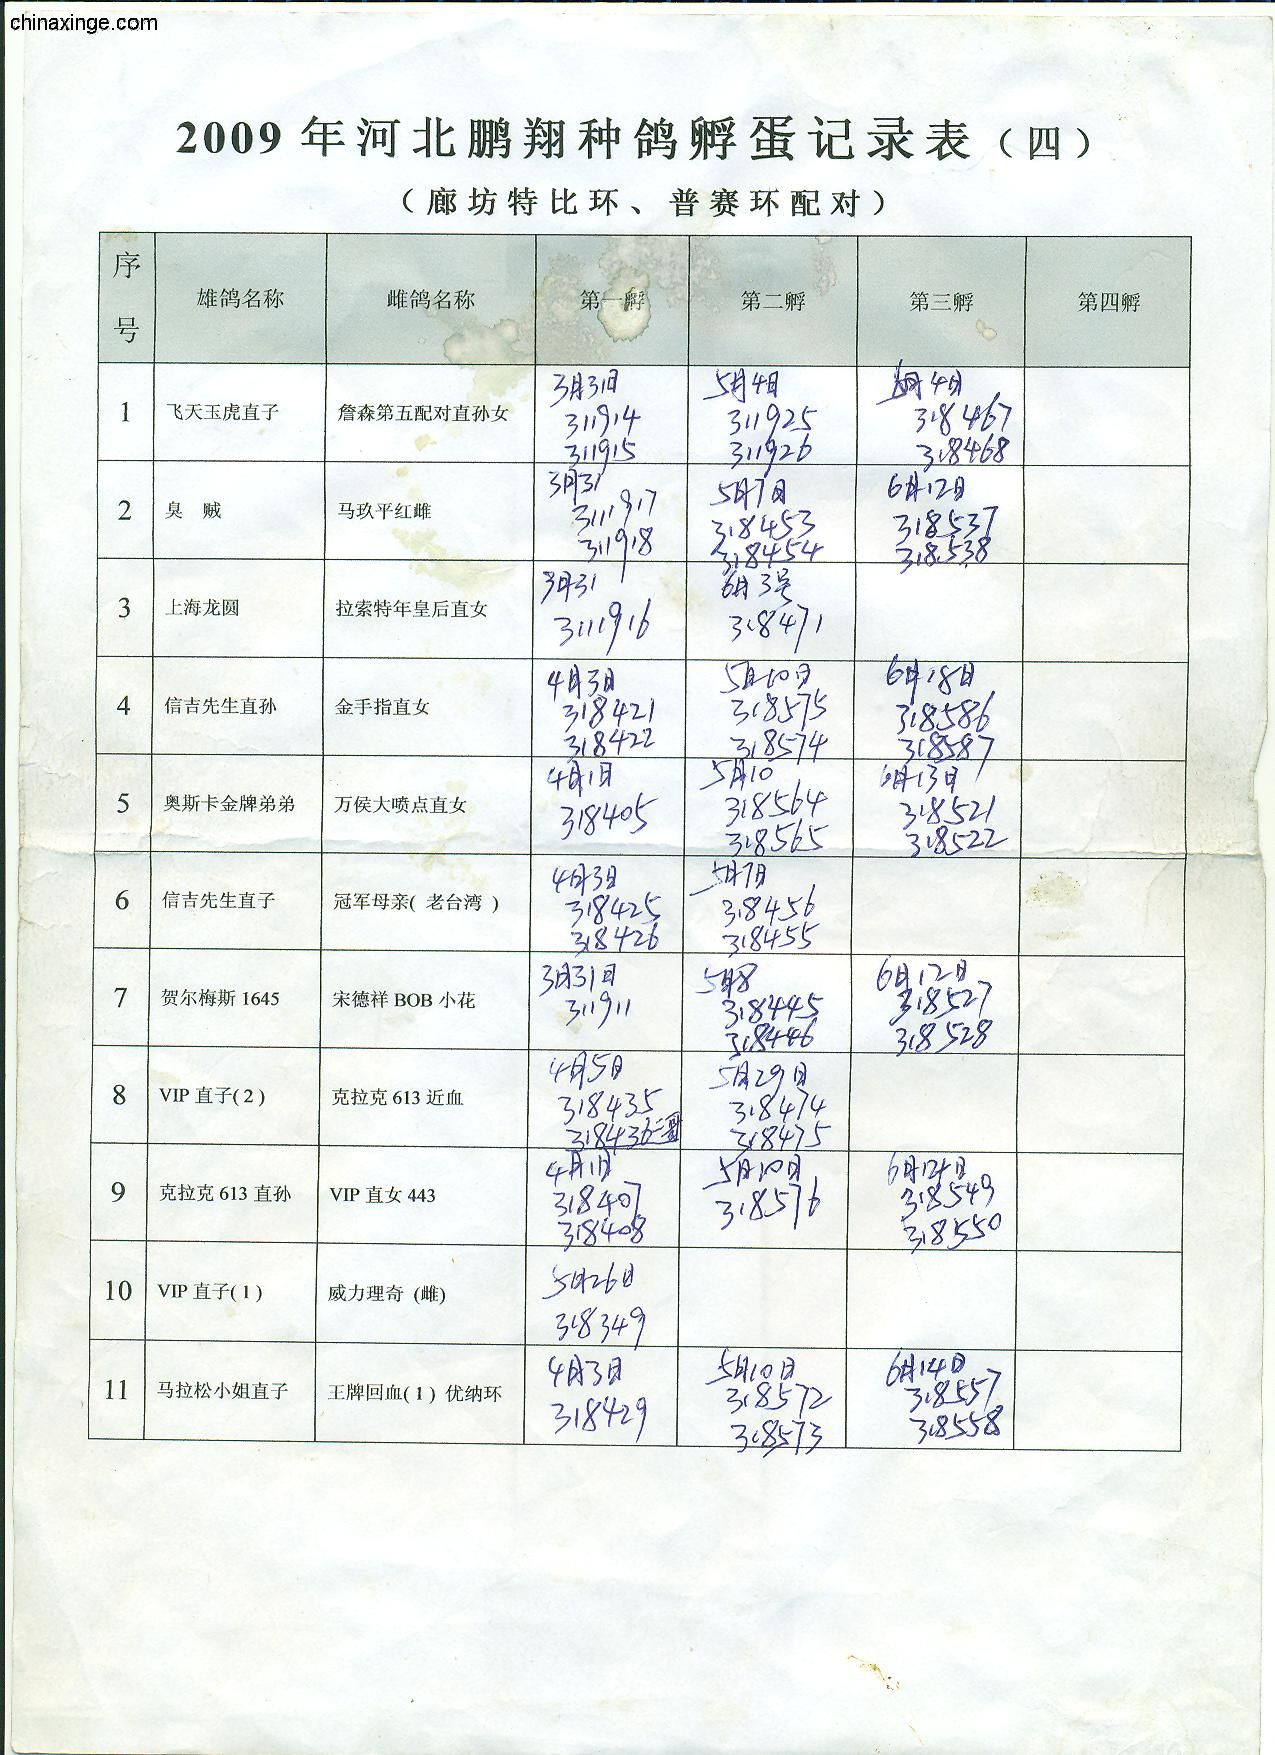 chinaxinge.com
2009年河北鹏翔种鸽孵蛋记录表（四）
（廊坊特比环、普赛环配对）
序号 雄鸽名称 雌鸽名称 第一孵 第二孵 第三孵 第四孵
1 飞天玉虎直子 詹森第五配对直孙女
3月31日
311914
311915
5月4日
311925
311926
月4日
318467
318468
2 臭 贼 马玖平红雌
3月31
3111917
311918
5月7日
318453
318454
6月12日
318537
318538
3 上海龙圆 拉索特年皇后直女
3月31
3111916
6月3号
318471
4 信吉先生直孙 金手指直女
4月3日
318421
318422
5月10日
318575
318574
6月18日
318586
318587
5 奥斯卡金牌弟弟 万侯大喷点直女
4月1日
318405
5月10
318564
318565
6月13日
318521
318522
6 信吉先生直子 冠军母亲( 老台湾 )
4月3日
318425
318426
5月7日
318456
318455
7 贺尔梅斯 1645 宋德祥 BOB 小花
3月31日
311911
5月8
318445
318446
6月12日
318527
318528
8 VIP 直子( 2 ) 克拉克 613 近血
4月5日
318435
318436
5月29日
318474
318475
9 克拉克 613 直孙 VIP 直女 443
4月1日
318407
318408
5月10日
318576
6月12日
318549
318550
10 VIP 直子( 1 ) 威力理奇 (雌)
5月26日
318349
11 马拉松小姐直子 王牌回血( 1 ) 优纳环
4月3日
318429
5月10日
318572
318573
6月14日
318557
318558